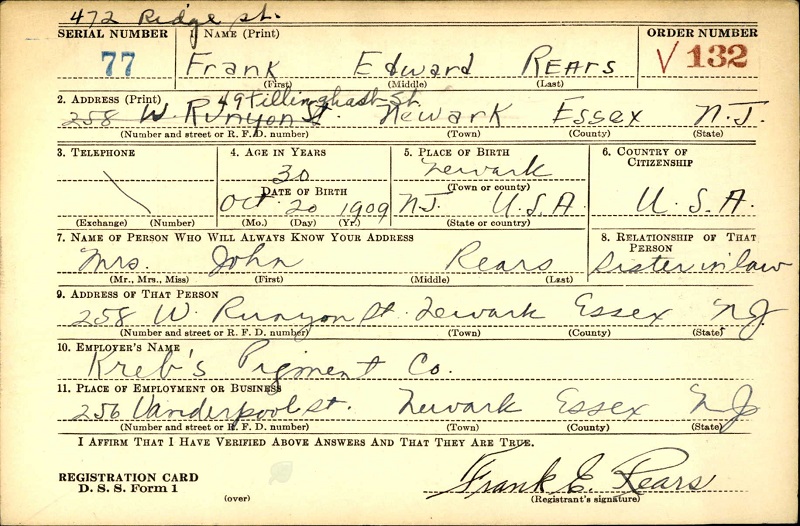 472 Ridge St.
SERIAL NUMBER 1. NAME (Print) ORDER NUMBER
77 Frank Edward Rears V 132
(First) (Middle) (Last)
2. ADDRESS (Print) 49 Tillinghast St.
258 W. Runyon St. Newark Essex N.J.
(Number and street or R. F. D. number) (Town) (County) (State)
3. TELEPHONE 4. AGE IN YEARS 5. PLACE OF BIRTH 6. COUNTRY OF CITIZENSHIP
30 Newark
DATE OF BIRTH (Town or county)
Oct 20 1909 N.J. U.S.A. U.S.A.
(Exchange) (Number) (Mo.) (Day) (Yr.) (State or country)
7. NAME OF PERSON WHO WILL ALWAYS KNOW YOUR ADDRESS 8. RELATIONSHIP OF THAT PERSON
Mrs. John Rears Sister in law
(Mr., Mrs., Miss) (First) (Middle) (Last)
9. ADDRESS OF THAT PERSON
258 W. Runyon St. Newark Essex N.J.
(Number and street or R. F. D. number) (Town) (County) (State)
10. EMPLOYER'S NAME
Kreb's Pigment Co.
11. PLACE OF EMPLOYMENT OR BUSINESS
256 Vanderpool St. Newark Essex N J
(Number and street or R. F. D. number) (Town) (County) (State)
I AFFIRM THAT I HAVE VERIFIED ABOVE ANSWERS AND THAT THEY ARE TRUE.
REGISTRATION CARD
D. S. S. Form 1 Frank E. Rears
(over) (Registrant's signature)